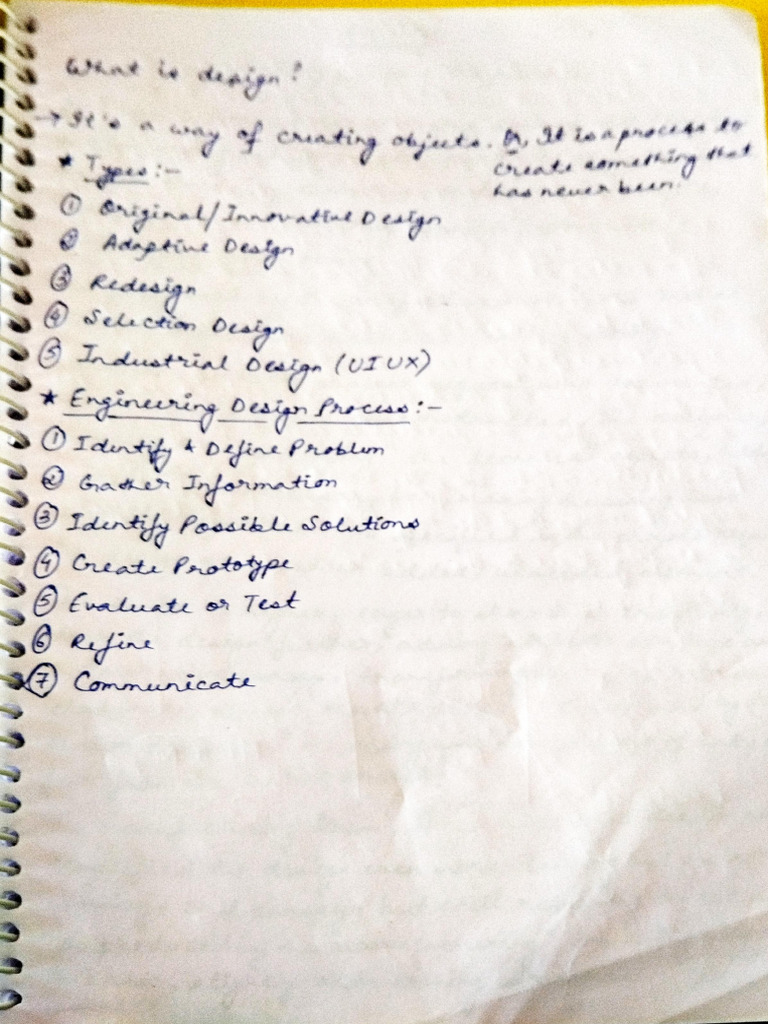 What is design?
→ It's a way of creating objects. Or, It is a process to
create something that
has never been.
* Types:-
① Original/Innovative Design
② Adaptive Design
③ Redesign
④ Selection Design
⑤ Industrial Design (UI UX)
* Engineering Design Process:-
① Identify & Define Problem
② Gather Information
③ Identify Possible Solutions
④ Create Prototype
⑤ Evaluate or Test
⑥ Refine
⑦ Communicate